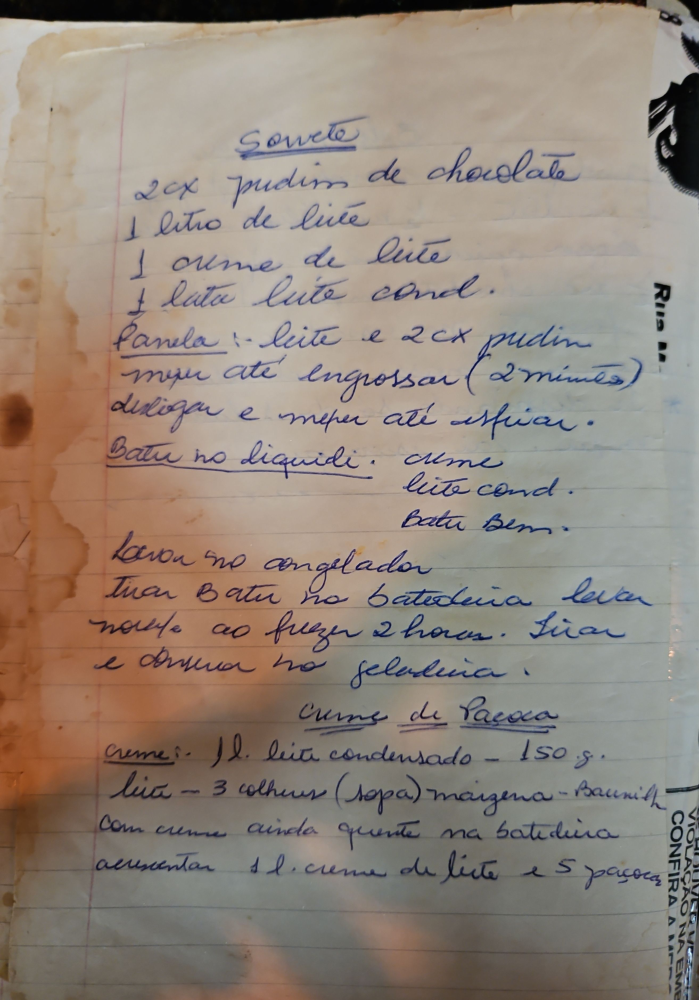 Sorvete
2 cx pudim de chocolate
1 litro de leite
1 creme de leite
1 lata leite cond.
Panela :- leite e 2 cx pudim
mexer até engrossar (2 minutos)
desligar e mexer até esfriar.
Bater no liquidi. creme
leite cond.
Bater Bem.
Levar no congelador
tirar Bater na batedeira levar
ao freezer 2 horas. Tirar
e conservar na geladeira.
Creme de Paçoca
creme:- 1 l. leite condensado - 150 g.
leite - 3 colheres (sopa) maizena - Baunilh
com creme ainda quente na batedeira
acrescentar 1 l. creme de leite e 5 paçocas
Rua M
VIOLAÇÃO NA EM
CONFIRA A